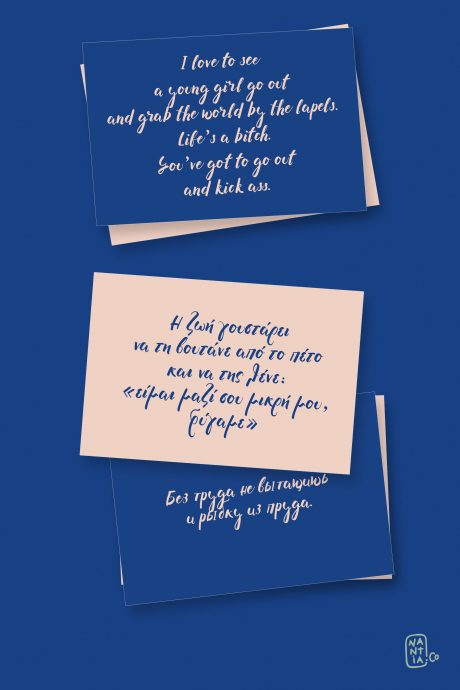 I love to see
a young girl go out
and grab the world by the lapels.
Life's a bitch.
You've got to go out
and kick ass.
Η ζωή γουστάρει
να τη βουτάνε από το πέτο
και να της λένε:
«είμαι μαζί σου μικρή μου,
φύγαμε»
Без труда не вытащишь
и рыбку из пруда.
NANTIA.Co